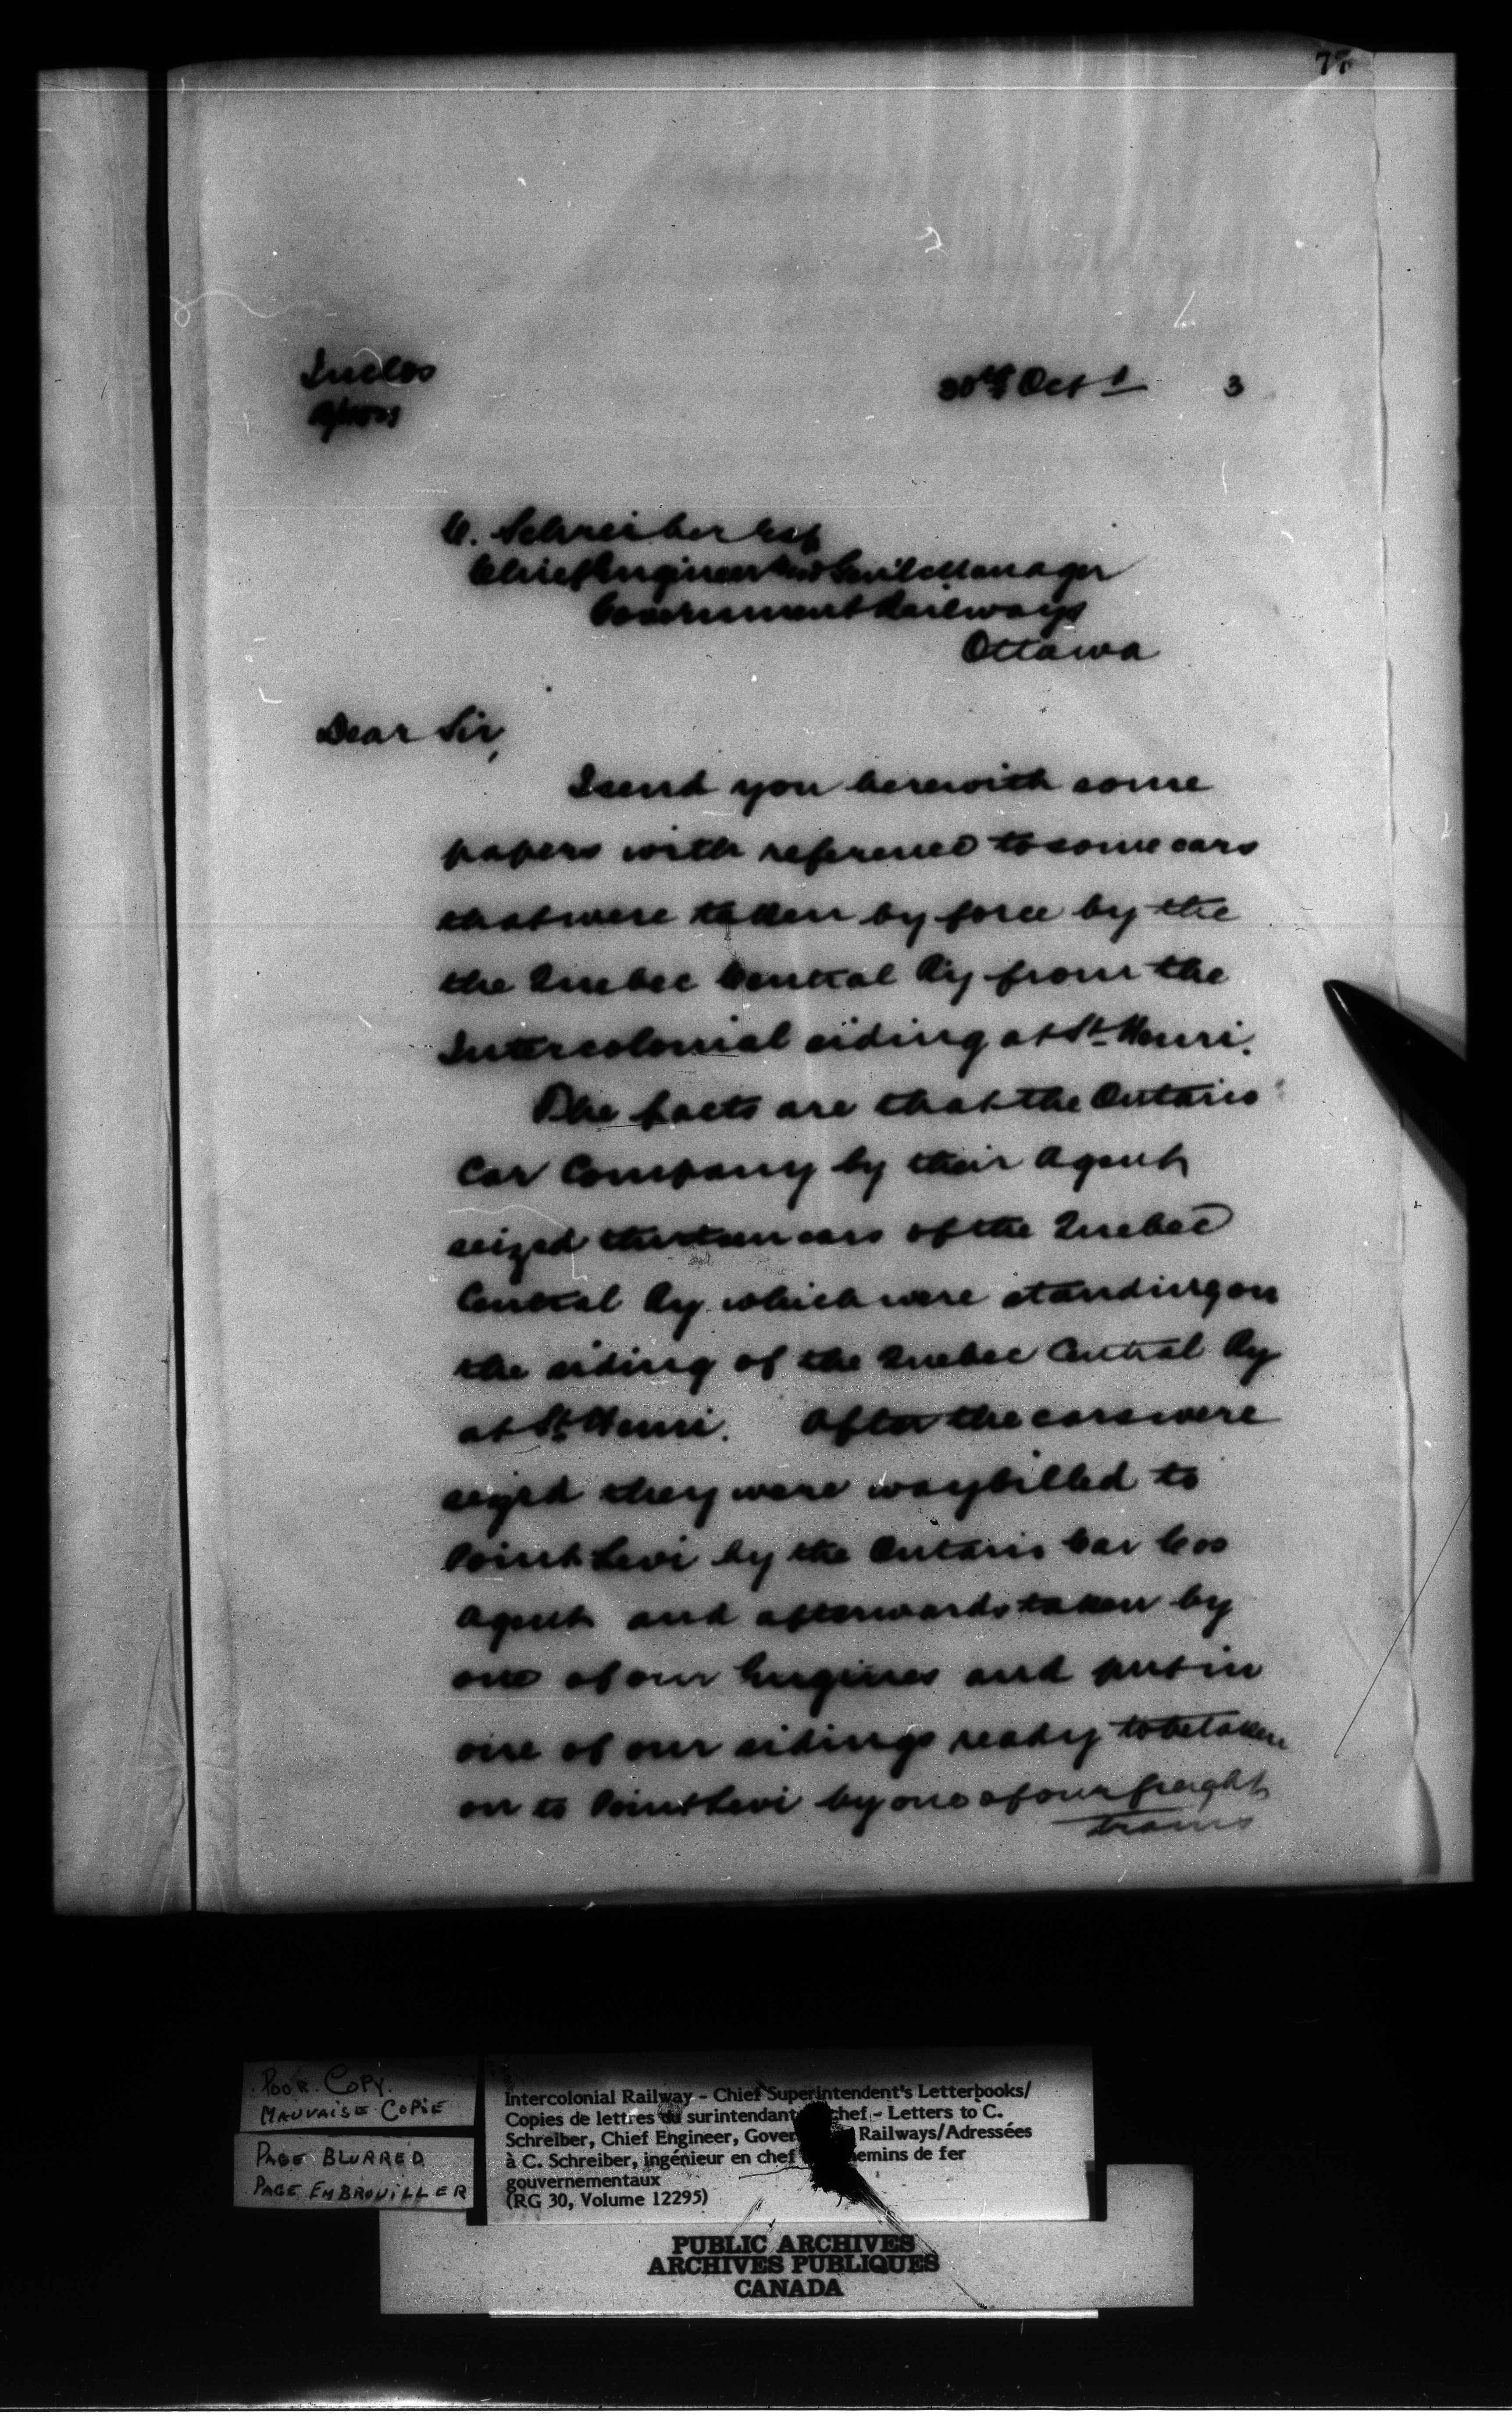 77
Inclos
30th Oct 3
C. Schreiber Esq
Chief Engineer and Gen'l Manager
Government Railways
Ottawa
Dear Sir,
I send you herewith some
papers with reference to some cars
that were taken by force by the
the Quebec Central Ry from the
Intercolonial siding at St Henri.
The facts are that the Ontario
Car Company by their Agent
seized thirteen cars of the Quebec
Central Ry which were standing on
the siding of the Quebec Central Ry
at St Henri. After the cars were
seized they were waybilled to
Point Levi by the Ontario Car Cos
Agent and afterwards taken by
one of our Engines and put in
one of our sidings ready to be taken
on to Point Levi by one of our freight
trains
POOR COPY.
MAUVAISE COPIE
PAGE BLURRED
PAGE EMBROUILLER
Intercolonial Railway – Chief Superintendent's Letterbooks/
Copies de lettres du surintendant chef – Letters to C.
Schreiber, Chief Engineer, Gover Railways/Adressées
à C. Schreiber, ingénieur en chef emins de fer
gouvernementaux
(RG 30, Volume 12295)
PUBLIC ARCHIVES
ARCHIVES PUBLIQUES
CANADA